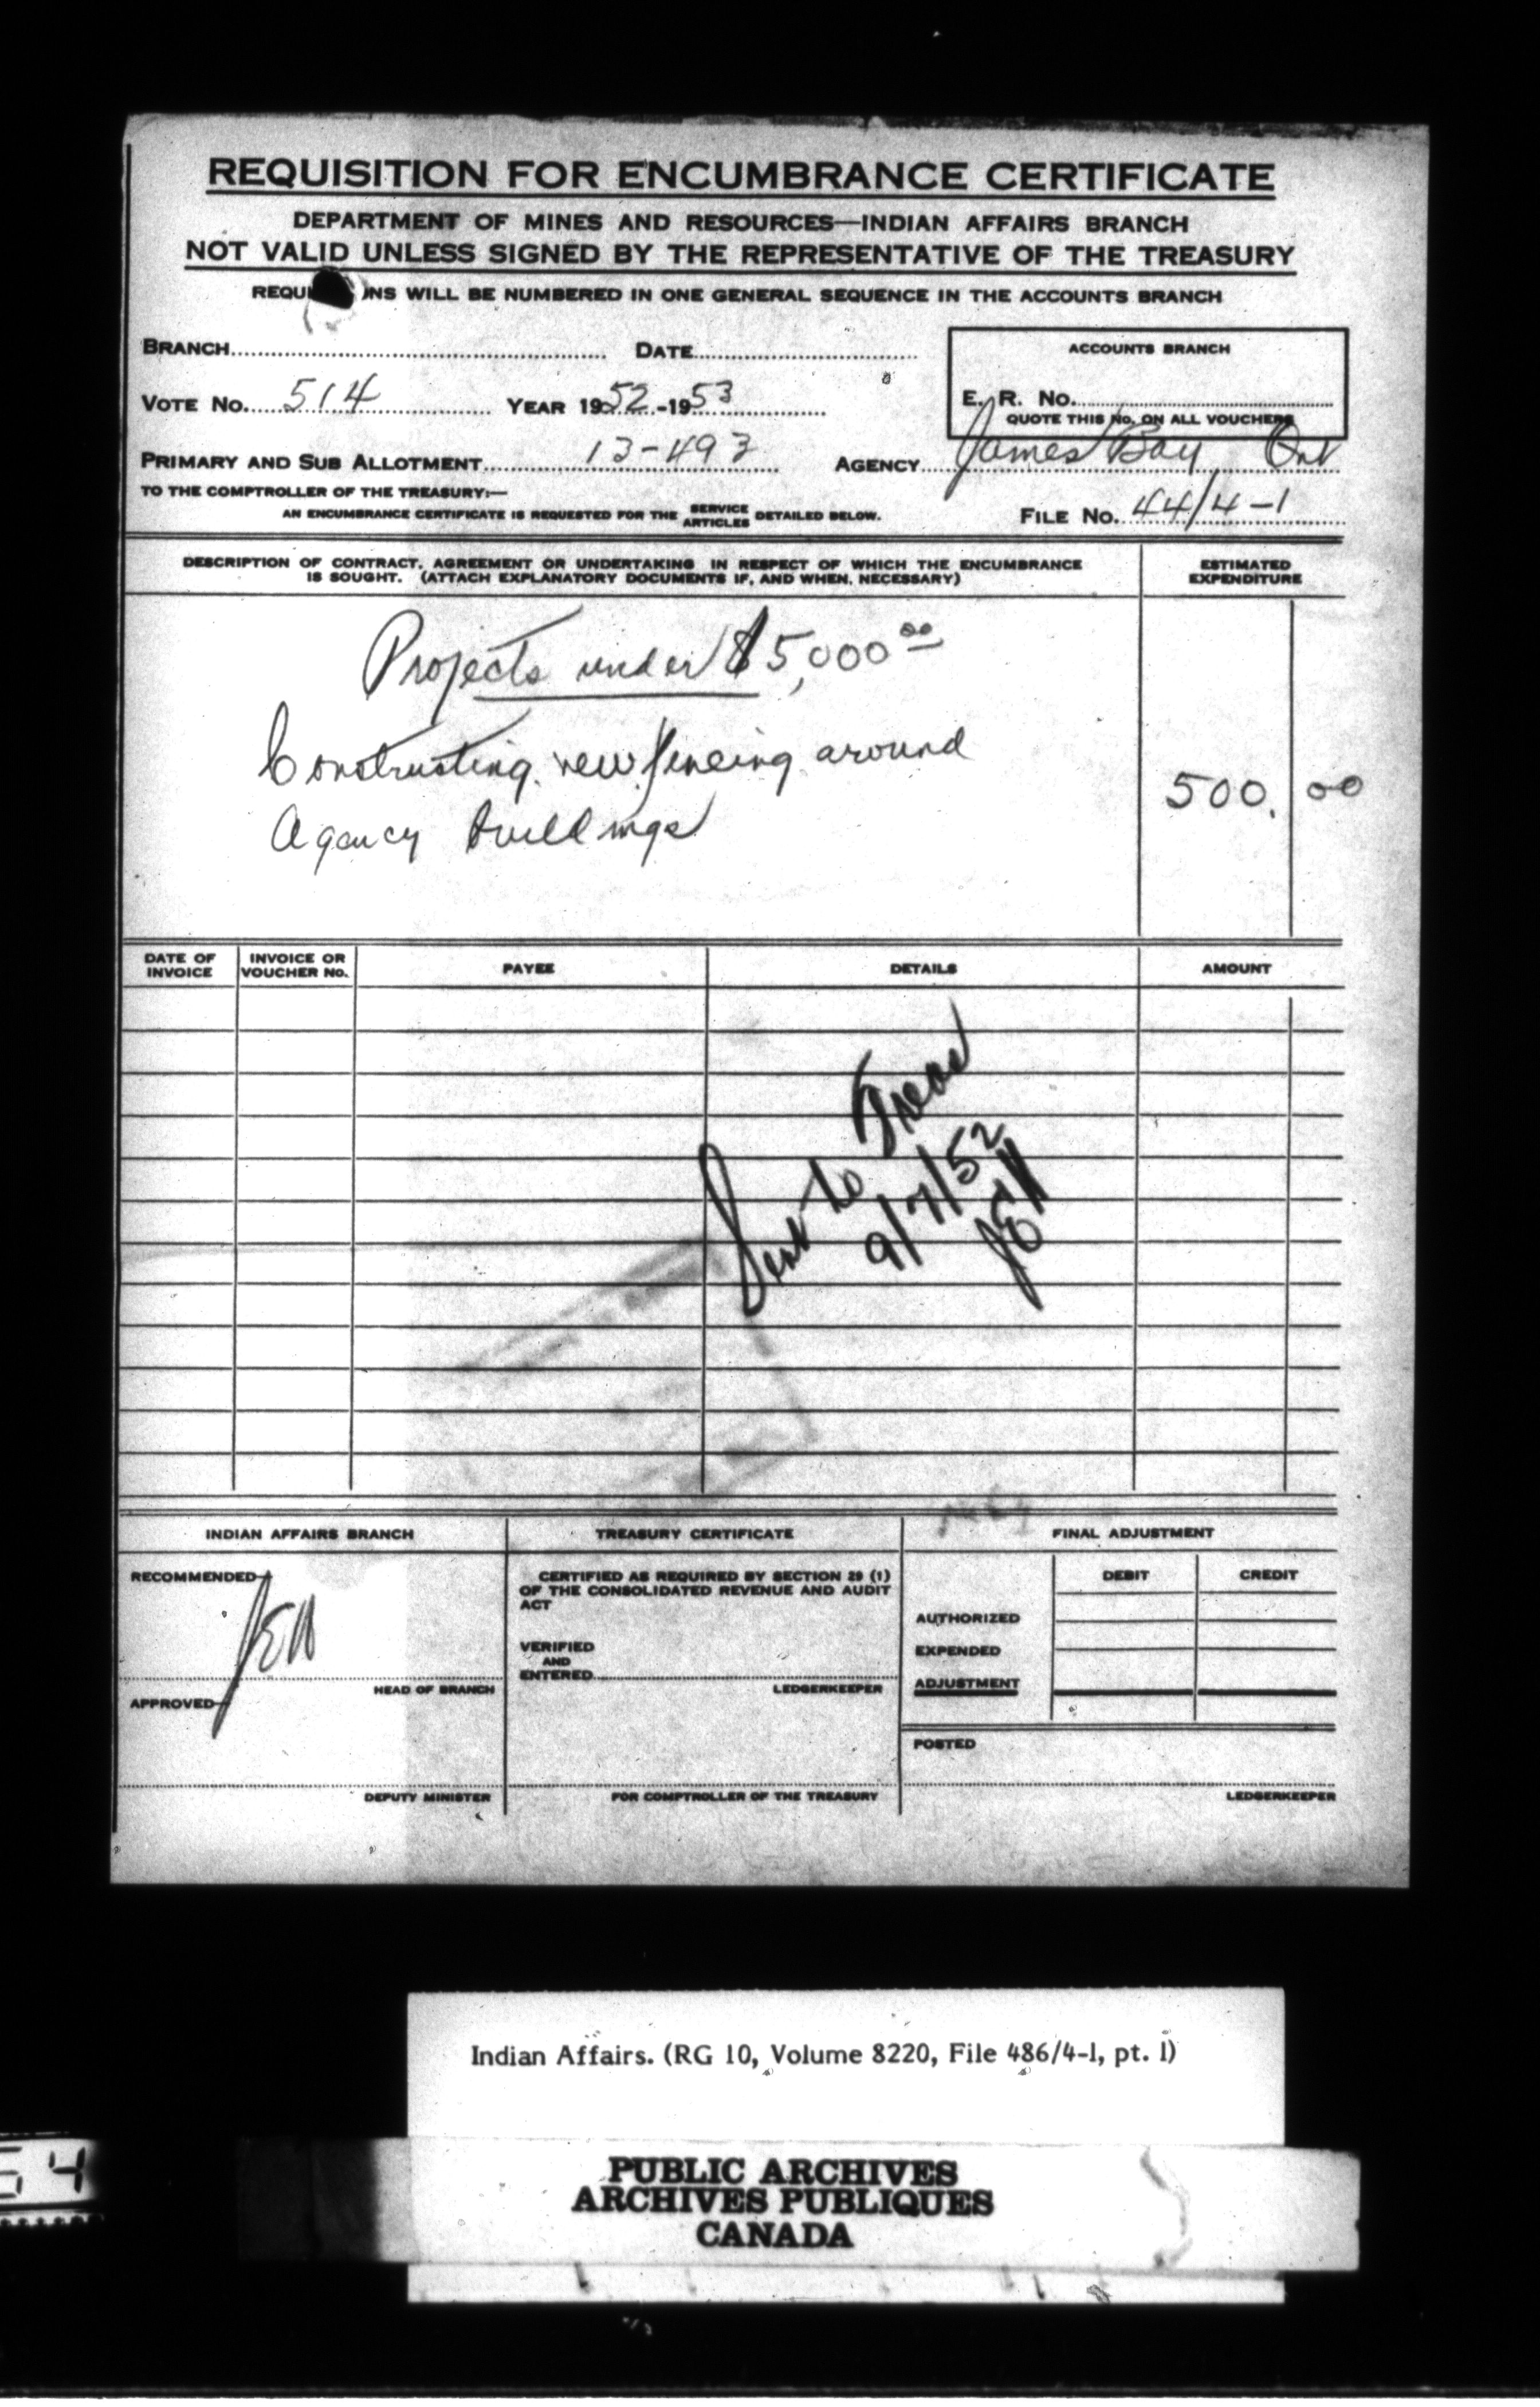 REQUISITION FOR ENCUMBRANCE CERTIFICATE
DEPARTMENT OF MINES AND RESOURCES—INDIAN AFFAIRS BRANCH
NOT VALID UNLESS SIGNED BY THE REPRESENTATIVE OF THE TREASURY
WILL BE NUMBERED IN ONE GENERAL SEQUENCE IN THE ACCOUNTS BRANCH
BRANCH DATE
ACCOUNTS BRANCH
VOTE No. 514 YEAR 1952-1953
E. R. No.
QUOTE THIS No. ON ALL VOUCHERS
PRIMARY AND SUB ALLOTMENT 13-493 AGENCY James Bay Ont
TO THE COMPTROLLER OF THE TREASURY:—
AN ENCUMBRANCE CERTIFICATE IS REQUESTED FOR THE SERVICE ARTICLES DETAILED BELOW.
FILE No. 44/4-1
DESCRIPTION OF CONTRACT, AGREEMENT OR UNDERTAKING IN RESPECT OF WHICH THE ENCUMBRANCE
IS SOUGHT. (ATTACH EXPLANATORY DOCUMENTS IF, AND WHEN, NECESSARY)
ESTIMATED
EXPENDITURE
Projects under $5,000 00
Constructing new fencing around
Agency buildings
500. 00
DATE OF INVOICE INVOICE OR VOUCHER No. PAYEE DETAILS AMOUNT
Sent to Treas
9/7/52
INDIAN AFFAIRS BRANCH
RECOMMENDED
HEAD OF BRANCH
APPROVED
DEPUTY MINISTER
TREASURY CERTIFICATE
CERTIFIED AS REQUIRED BY SECTION 29 (1)
OF THE CONSOLIDATED REVENUE AND AUDIT
ACT
VERIFIED
AND
ENTERED
LEDGERKEEPER
FOR COMPTROLLER OF THE TREASURY
FINAL ADJUSTMENT
DEBIT CREDIT
AUTHORIZED
EXPENDED
ADJUSTMENT
POSTED
LEDGERKEEPER
Indian Affairs. (RG 10, Volume 8220, File 486/4-1, pt. 1)
54
PUBLIC ARCHIVES
ARCHIVES PUBLIQUES
CANADA